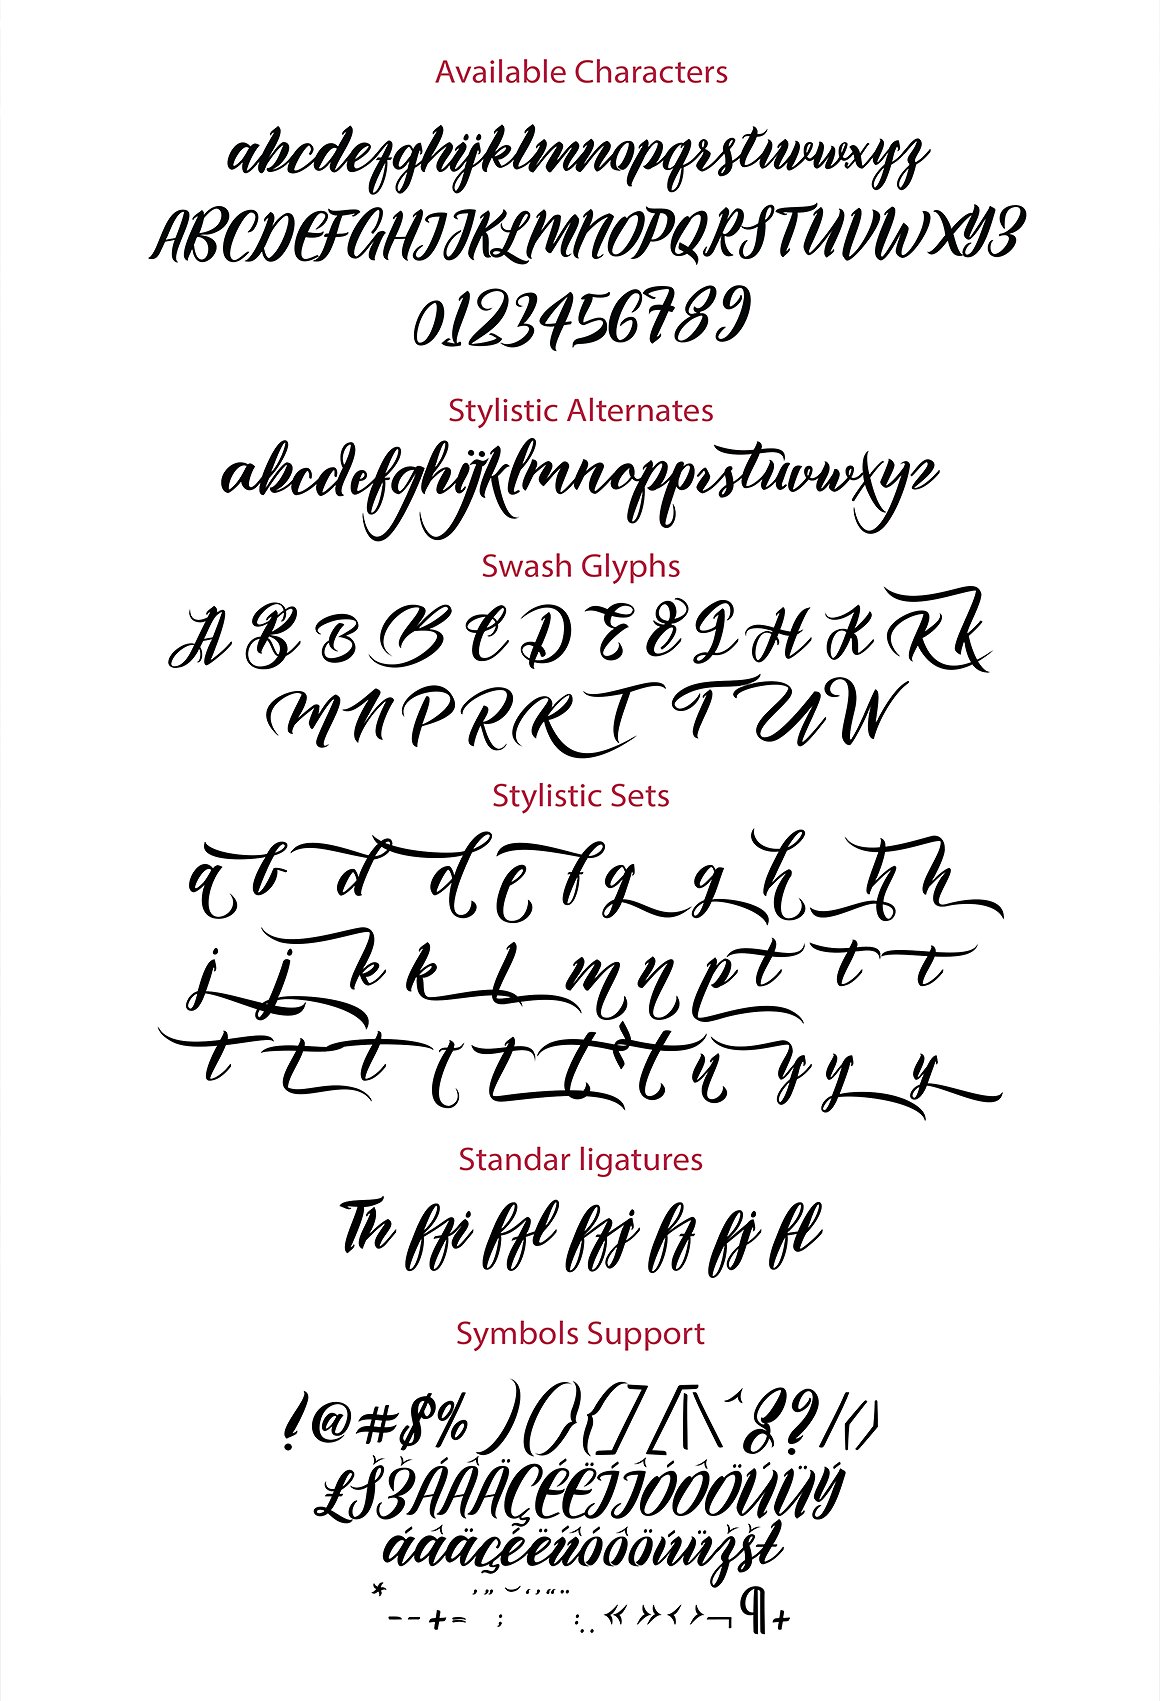 Available Characters
abcdefghijklmnopqrstuvwxyz
ABCDEFGHIJKLMNOPQRSTUVWXYZ
0123456789
Stylistic Alternates
abcdefghijklmnopprstuvwxyz
Swash Glyphs
A B B B C D E E G H K K K
M N P R R T T U W
Stylistic Sets
a b d d e f g g h h h
j j k k l m n p t t t
t t t t t t t u y y y
Standar ligatures
Th ffi ffl ffj ff fj fl
Symbols Support
!@#$%)(){[]/[\^&?/‹›
£ŠŽÁÂÄÇÉËÍÎÓÔÖÚÜÝ
áâäçéëíîóôöúüžšł